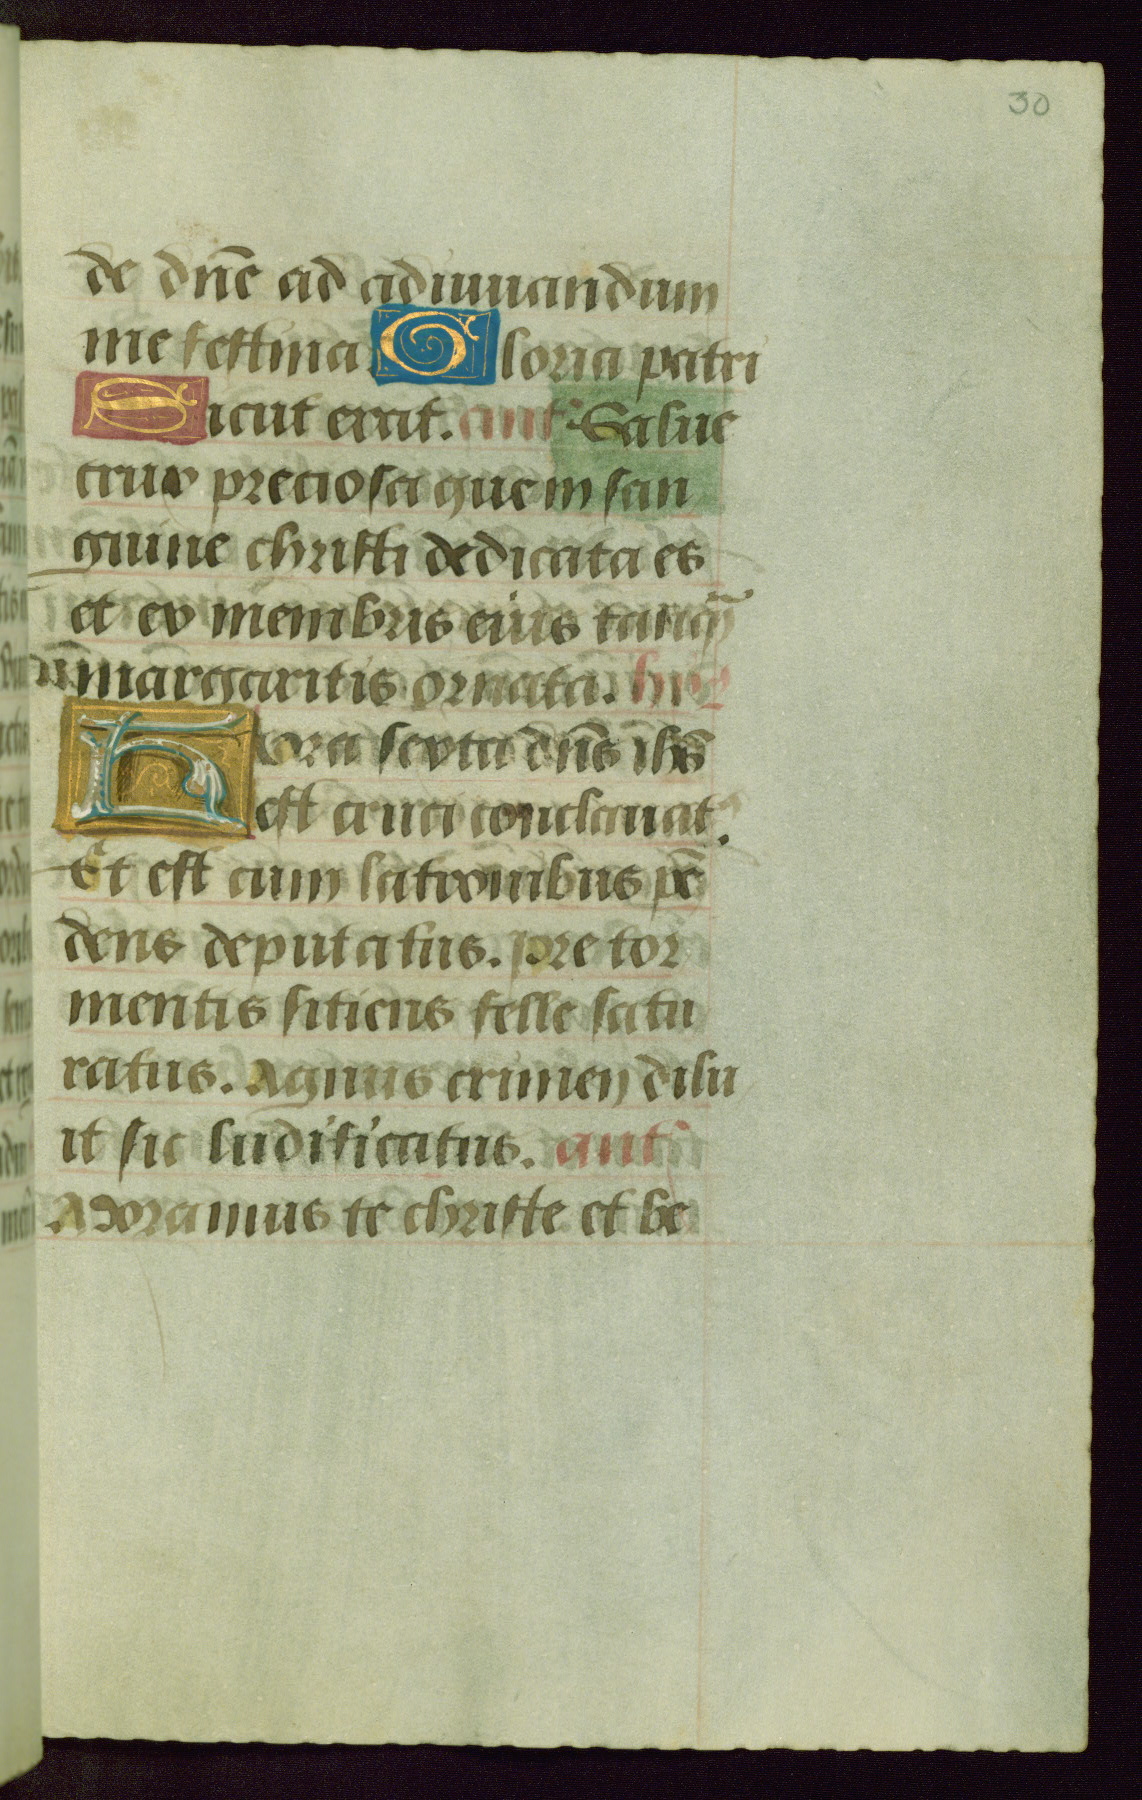 30
de dn̄e ad adiuuandum
me festina Gloria patri
Sicut erat. ant̄ Salue
crux preciosa que in san
guine christi dedicata es
et ex membris eius tanq̄
margaritis ornata. hỹ
Hora sexta dn̄s ihs̄
est cruci conclauat.
Et est cum latronibus pē
dens deputatus. pre tor
mentis sitiens felle satu
ratus. Agnus crimen dilu
it sic ludificatus. ant̄
Adoramus te christe et be